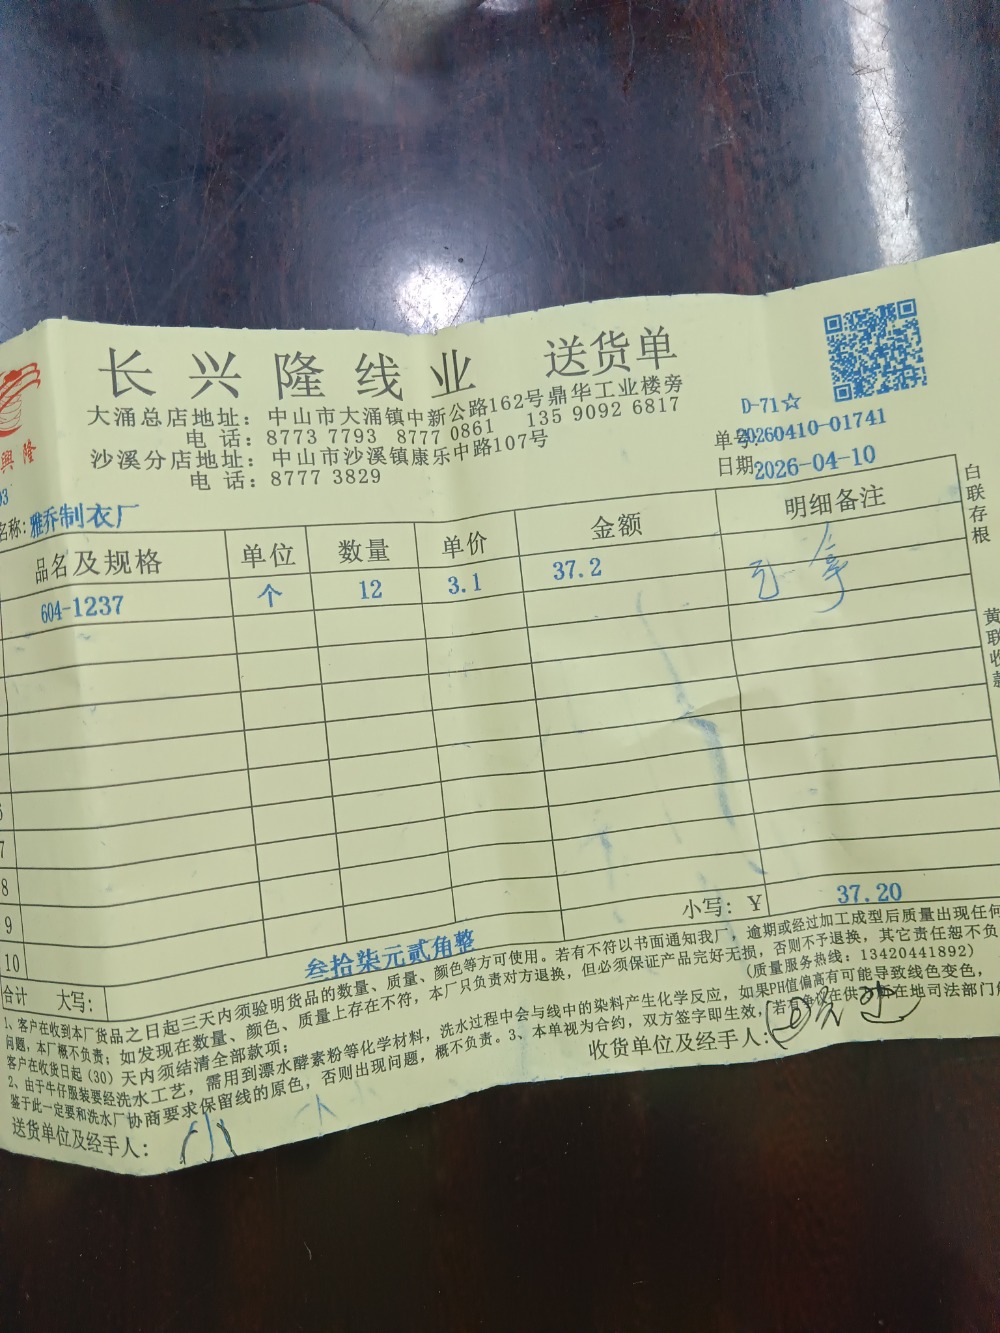 长兴隆线业 送货单
大涌总店地址：中山市大涌镇中新公路162号鼎华工业楼旁
电 话：8773 7793 8777 0861 135 9092 6817
沙溪分店地址：中山市沙溪镇康乐中路107号
电 话：8777 3829
興隆
D-71☆
单号:20260410-01741
日期2026-04-10
名称:雅乔制衣厂
品名及规格 单位 数量 单价 金额 明细备注
604-1237 个 12 3.1 37.2
7
8
9
10
小写：¥ 37.20
合计 大写： 叁拾柒元贰角整
白联存根
黄联收款
1、客户在收到本厂货品之日起三天内须验明货品的数量、质量、颜色等方可使用。若有不符以书面通知我厂，逾期或经过加工成型后质量出现任何
问题，本厂概不负责；如发现在数量、颜色、质量上存在不符，本厂只负责对方退换，但必须保证产品完好无损，否则不予退换，其它责任恕不负
客户在收货日起（30）天内须结清全部款项； （质量服务热线：13420441892）
2、由于牛仔服装要经洗水工艺，需用到漂水酵素粉等化学材料，洗水过程中会与线中的染料产生化学反应，如果PH值偏高有可能导致线色变色，
鉴于此一定要和洗水厂协商要求保留线的原色，否则出现问题，概不负责。3、本单视为合约，双方签字即生效，若有争议在供方所在地司法部门
送货单位及经手人： 收货单位及经手人：